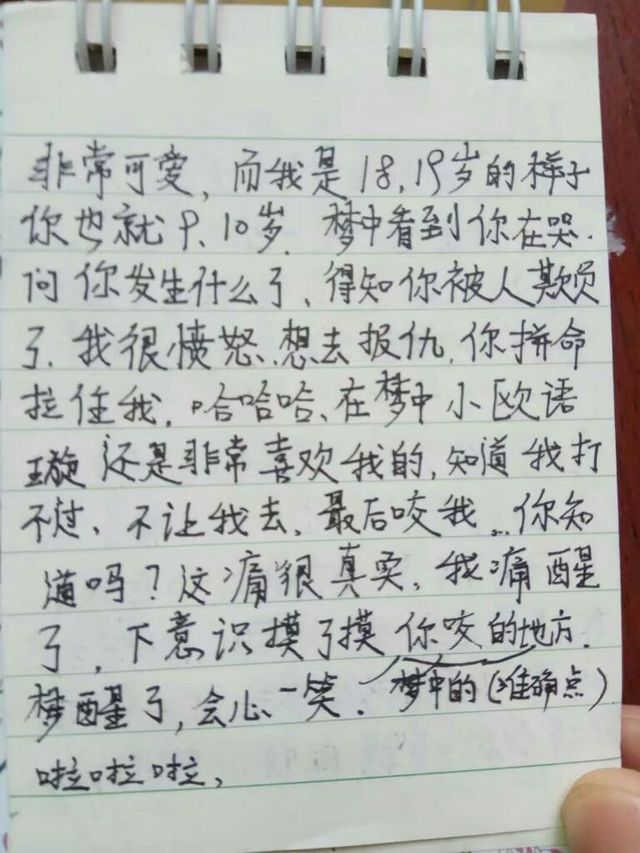 非常可爱，而我是18，19岁的样子
你也就9、10岁．梦中看到你在哭．
问你发生什么了、得知你被人欺负
了．我很愤怒、想去报仇．你拼命
拉住我，哈哈哈、在梦中小欧语
璇还是非常喜欢我的，知道我打
不过、不让我去、最后咬我…你知
道吗？这痛很真实、我痛醒
了，下意识摸了摸你咬的地方．
梦醒了，会心一笑．梦中的（准确点）
啦啦啦，